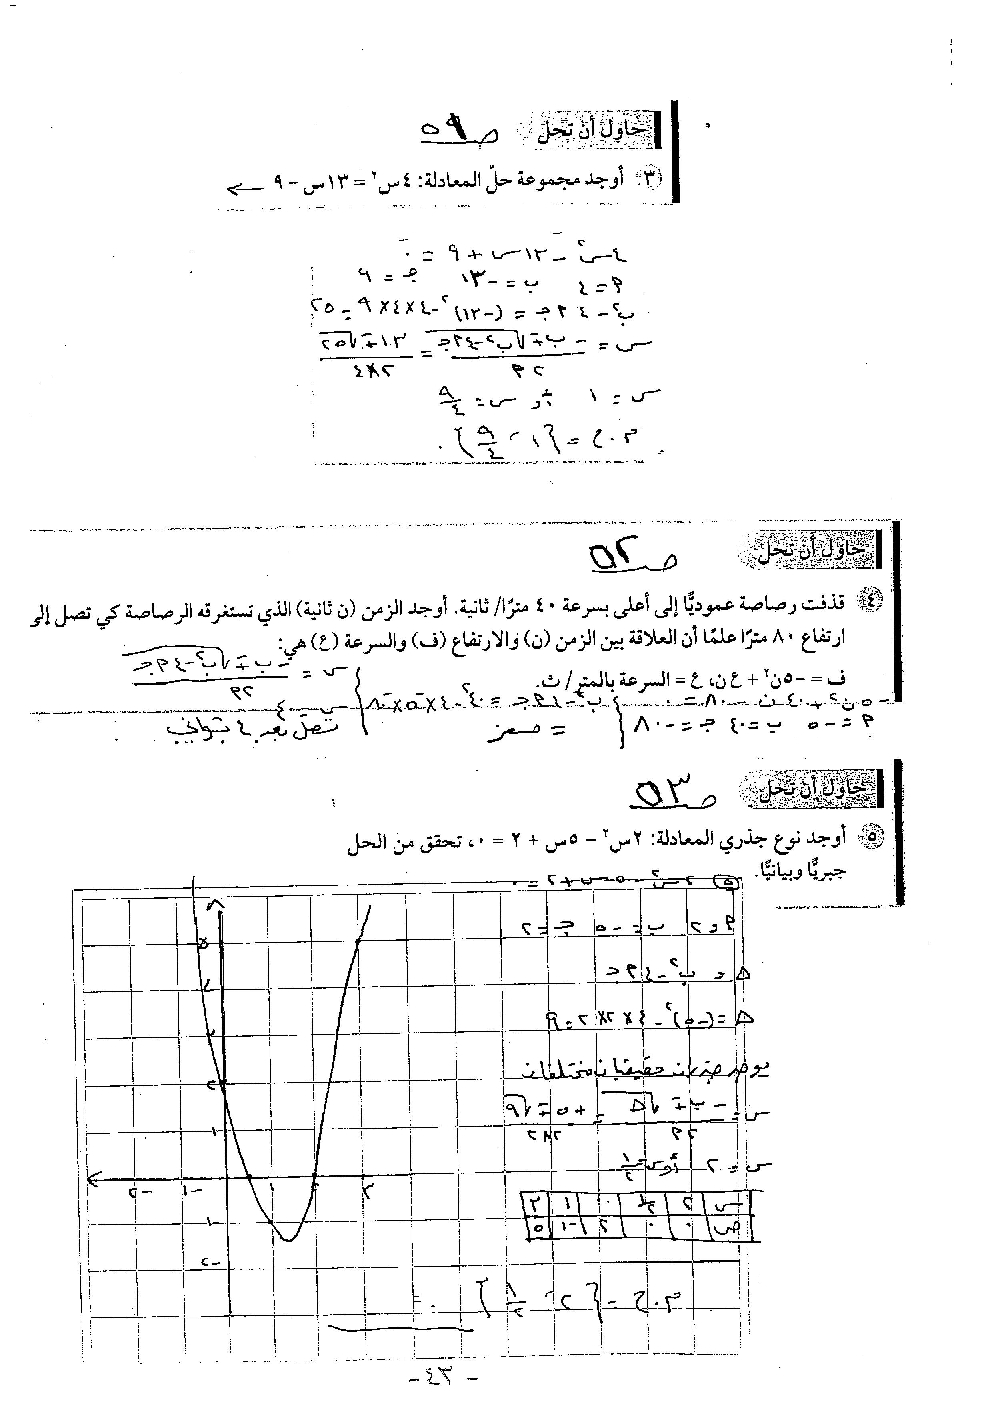 حاول أن تحل ص ٥٩
٣ أوجد مجموعة حلّ المعادلة: ٤س٢ = ١٣س - ٩ ←
٤س٢ - ١٣س + ٩ = ٠
٩ = ج ١٣- = ب ٤ = م
ب٢ - ٤م ج = (-١٣)٢ - ٤×٤×٩ = ٢٥
س = (-ب ∓ √(ب٢ - ٤م ج)) / ٢م = (١٣ ∓ √٢٥) / (٢×٤)
س = ١ أو س = ٩/٤
م.ح = {١، ٩/٤}.
حاول أن تحل ص ٥٢
٤ قذفت رصاصة عموديًّا إلى أعلى بسرعة ٤٠ مترًا/ ثانية. أوجد الزمن (ن ثانية) الذي تستغرقه الرصاصة كي تصل إلى
ارتفاع ٨٠ مترًا علمًا أن العلاقة بين الزمن (ن) والارتفاع (ف) والسرعة (ع) هي:
ف = -٥ن٢ + ع ن، ع = السرعة بالمتر/ ث.
س = (-ب ∓ √(ب٢ - ٤م ج)) / ٢م
-٥ن٢ + ٤٠ن - ٨٠ = ٠
ب٢ - ٤م ج = ٤٠٢ - ٤×-٥×-٨٠
م = -٥ ب = ٤٠ ج = -٨٠
= صفر
س = ٤
تصل بعد ٤ ثواني
حاول أن تحل ص ٥٣
٥ أوجد نوع جذري المعادلة: ٢س٢ - ٥س + ٢ = ٠، تحقق من الحل
جبريًّا وبيانيًّا.
٥ ٢س٢ - ٥س + ٢ = ٠
م = ٢ ب = -٥ ج = ٢
Δ = ب٢ - ٤م ج
Δ = (-٥)٢ - ٤×٢×٢ = ٩
يوجد جذران حقيقيان مختلفان
س = (-ب ∓ √Δ) / ٢م = (+٥ ∓ √٩) / (٢×٢)
س = ٢ أو س = ١/٢
س ٢ ١/٢ ٠ ١ ٣
ص ٠ ٠ ٢ -١ ٥
م.ح = {٢، ١/٢}.
- ٤٣ -